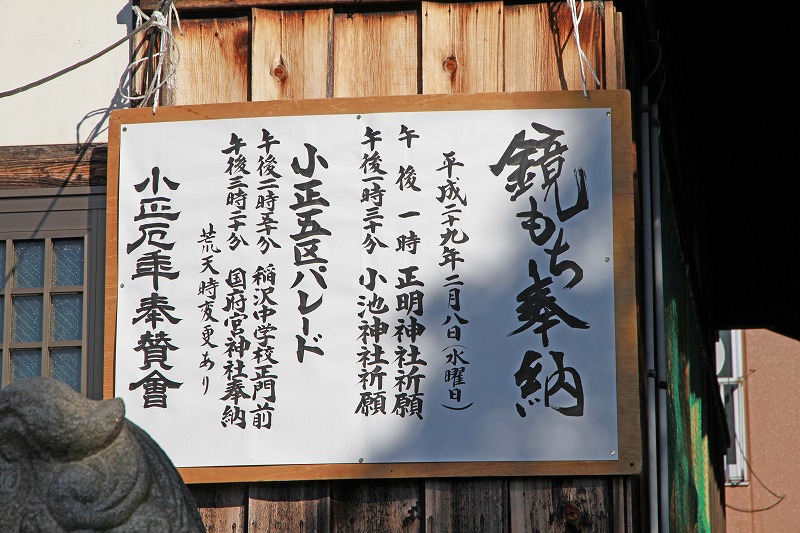 鏡もち奉納
平成二十九年二月八日(水曜日)
午後一時 正明神社祈願
午後一時三十分 小池神社祈願
小正五区パレード
午後二時五十分 稲沢中学校正門前
午後三時二十分 国府宮神社奉納
荒天時変更あり
小正厄年奉賛會